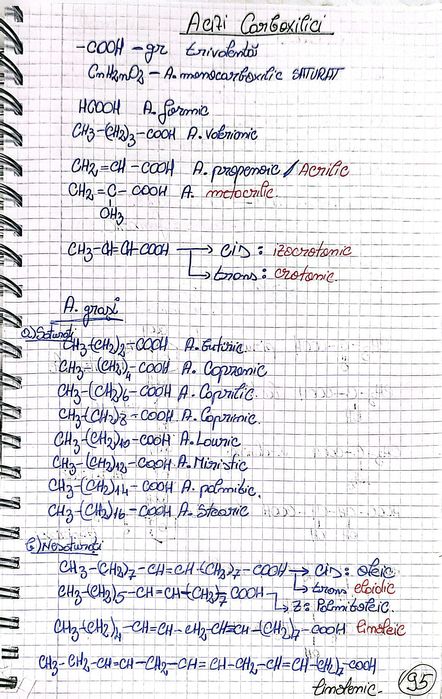 Acizi Carboxilici
-COOH - gr trivalentă
CnH2nO2 - A. monocarboxilic SATURAT
HCOOH A. formic
CH3-(CH2)3-COOH A. valerianic
CH2=CH-COOH A. propenoic / Acrilic
CH2=C-COOH A. metacrilic.
CH3
CH3-CH=CH-COOH → cis: izocrotonic
→ trans: crotonic
A. grași
a) Saturați
CH3-(CH2)2-COOH A. Butiric.
CH3-(CH2)4-COOH A. Capronic
CH3-(CH2)6-COOH A. Caprilic
CH3-(CH2)8-COOH A. Caprinic.
CH3-(CH2)10-COOH A. Lauric
CH3-(CH2)12-COOH A. Miristic
CH3-(CH2)14-COOH A. palmitic.
CH3-(CH2)16-COOH A. Stearic
b) Nesaturați
CH3-(CH2)7-CH=CH-(CH2)7-COOH → cis: oleic
→ trans elaidic
CH3-(CH2)5-CH=CH-(CH2)7COOH → Z: Palmitoleic.
CH3-(CH2)4-CH=CH-CH2-CH=CH-(CH2)7-COOH linoleic
CH3-CH2-CH=CH-CH2-CH=CH-CH2-CH=CH-(CH2)7-COOH
linolenic.
95